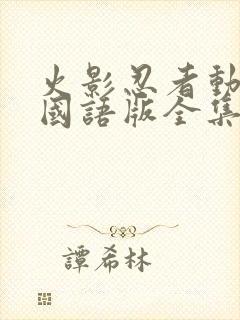 火影忍者動
國語版全集
譚希林